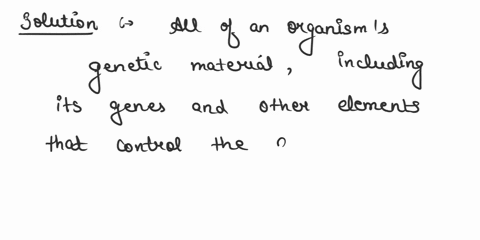 Solution ↪ All of an organism's
genetic material, including
its genes and other elements
that control the